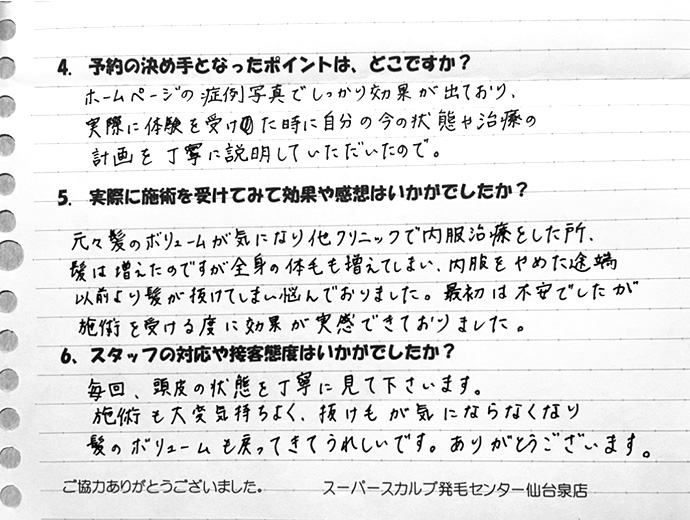 4. 予約の決め手となったポイントは、どこですか？
ホームページの症例写真でしっかり効果が出ており、
実際に体験を受けた時に自分の今の状態や治療の
計画を丁寧に説明していただいたので。
5. 実際に施術を受けてみて効果や感想はいかがでしたか？
元々髪のボリュームが気になり他クリニックで内服治療をした所、
髪は増えたのですが全身の体毛も増えてしまい、内服をやめた途端
以前より髪が抜けてしまい悩んでおりました。最初は不安でしたが
施術を受ける度に効果が実感できておりました。
6. スタッフの対応や接客態度はいかがでしたか？
毎回、頭皮の状態を丁寧に見て下さいます。
施術も大変気持ちよく、抜け毛が気にならなくなり
髪のボリュームも戻ってきてうれしいです。ありがとうございます。
ご協力ありがとうございました。 スーパースカルプ発毛センター仙台泉店